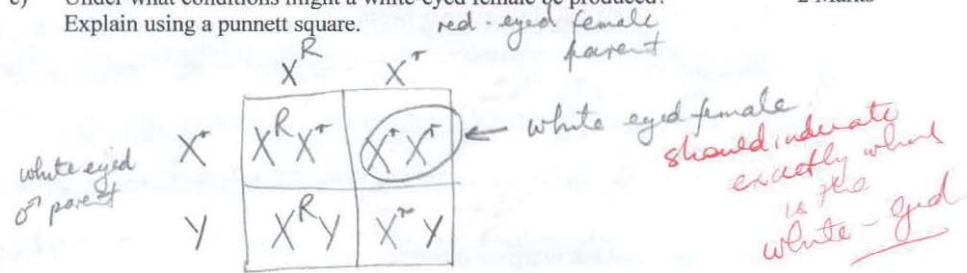 Explain using a punnett square.
red-eyed female
parent
X^R X^r
white eyed
♂ parent
X^r X^R X^r X^r X^r
← white eyed female
Y X^R Y X^r Y
should indicate
exactly
is the
white-eyed